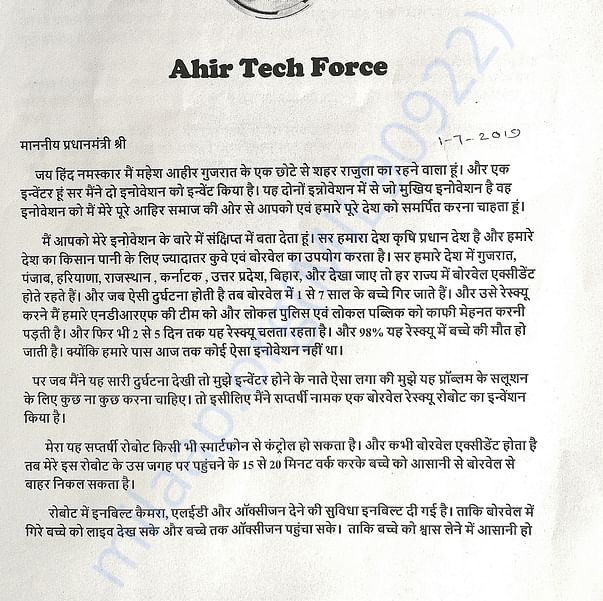 Ahir Tech Force
माननीय प्रधानमंत्री श्री
1-7-2019
जय हिंद नमस्कार मैं महेश आहीर गुजरात के एक छोटे से शहर राजुला का रहने वाला हूं। और एक
इन्वेंटर हूं सर मैंने दो इनोवेशन को इन्वेंट किया है। यह दोनों इन्नोवेशन में से जो मुखिय इनोवेशन है वह
इनोवेशन को मैं मेरे पूरे आहिर समाज की ओर से आपको एवं हमारे पूरे देश को समर्पित करना चाहता हूं।
मैं आपको मेरे इनोवेशन के बारे में संक्षिप्त में बता देता हूं। सर हमारा देश कृषि प्रधान देश है और हमारे
देश का किसान पानी के लिए ज्यादातर कुवे एवं बोरवेल का उपयोग करता है। सर हमारे देश में गुजरात,
पंजाब, हरियाणा, राजस्थान , कर्नाटक , उत्तर प्रदेश, बिहार, और देखा जाए तो हर राज्य में बोरवेल एक्सीडेंट
होते रहते हैं। और जब ऐसी दुर्घटना होती है तब बोरवेल में 1 से 7 साल के बच्चे गिर जाते हैं। और उसे रेस्क्यू
करने मैं हमारे एनडीआरएफ की टीम को और लोकल पुलिस एवं लोकल पब्लिक को काफी मेहनत करनी
पड़ती है। और फिर भी 2 से 5 दिन तक यह रेस्क्यू चलता रहता है। और 98% यह रेस्क्यू में बच्चे की मौत हो
जाती है। क्योंकि हमारे पास आज तक कोई ऐसा इनोवेशन नहीं था।
पर जब मैंने यह सारी दुर्घटना देखी तो मुझे इन्वेंटर होने के नाते ऐसा लगा की मुझे यह प्रॉब्लम के सलूशन
के लिए कुछ ना कुछ करना चाहिए। तो इसीलिए मैंने सप्तर्षी नामक एक बोरवेल रेस्क्यू रोबोट का इन्वेंशन
किया है।
मेरा यह सप्तर्षी रोबोट किसी भी स्मार्टफोन से कंट्रोल हो सकता है। और कभी बोरवेल एक्सीडेंट होता है
तब मेरे इस रोबोट के उस जगह पर पहुंचने के 15 से 20 मिनट वर्क करके बच्चे को आसानी से बोरवेल से
बाहर निकल सकता है।
रोबोट में इनबिल्ट कैमरा, एलईडी और ऑक्सीजन देने की सुविधा इनबिल्ट दी गई है। ताकि बोरवेल में
गिरे बच्चे को लाइव देख सके और बच्चे तक ऑक्सीजन पहुंचा सके। ताकि बच्चे को श्वास लेने में आसानी हो